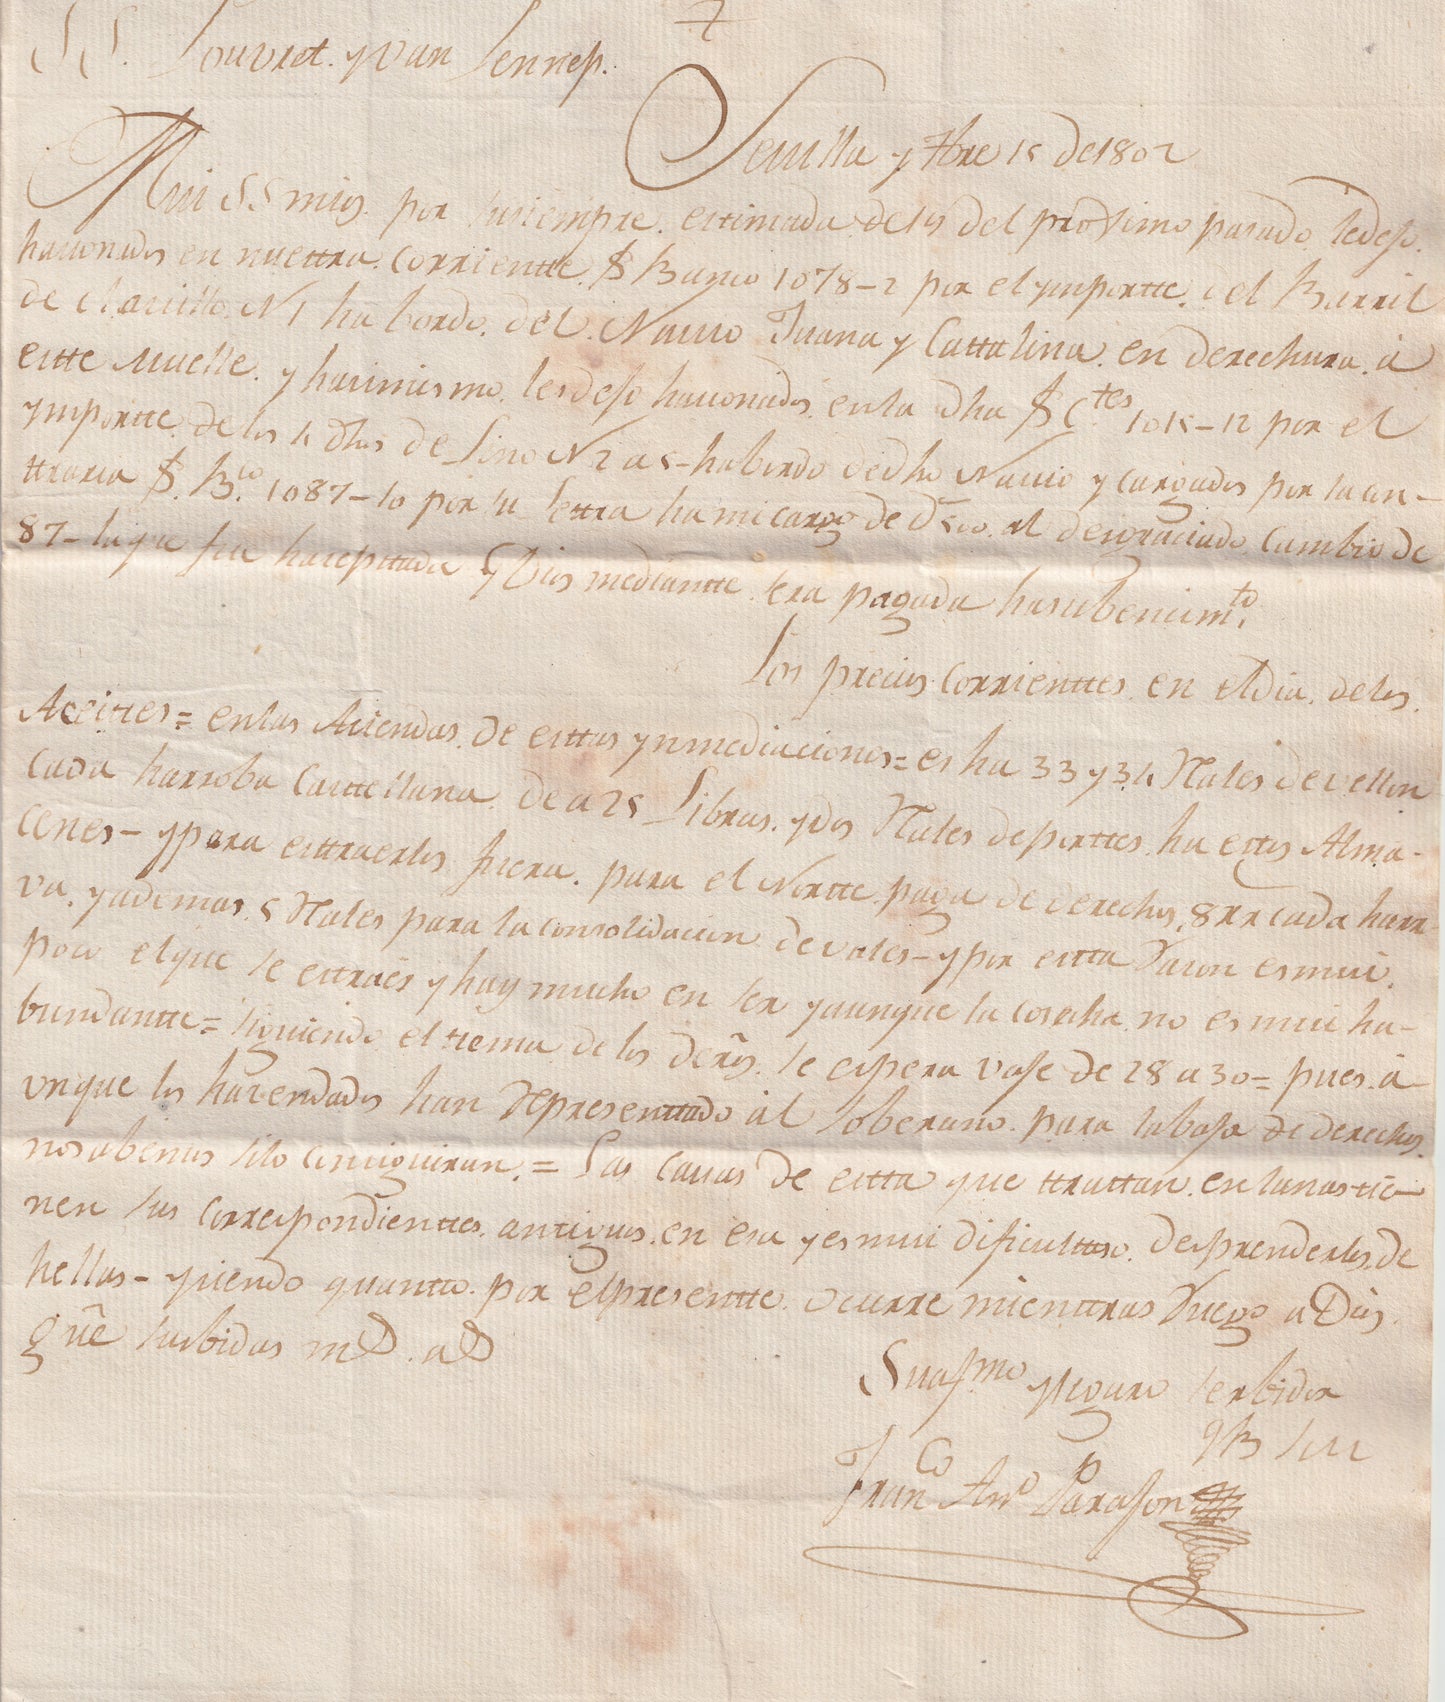 SS. Louvret. y Van Sennep.
Sevilla y 7bre 15 de 1802
Mui SS mios. por su siempre. estimada de 19 del proximo pasado ledejo.
havonados en nuettra. Corrientte. $ Banco 1078-2 por el ymportte. del Barril
de Clavillo. N 1 ha bordo. del. Navio Juana y Cattalina. en derechura. á
eitte Muelle. y hasimismo. lesdejo havonados. en la dha $ C.tes 1015-12 por el
ymportte. de los 4 dhos de Lino N 2 a 5- habordo dedho Navio y cargados por la con-
ttraria $. B.co 1087-10 por su lettra ha mi cargo de al desgraciado Cambio de
87- la que fue haceptada y Dios mediantte. sera pagada hasubencim.to
Los precios Corrienttes. en el dia. delos.
Aceites= enlas Aciendas. de esttas ynmediaciones= es ha 33 y 34 Rales de vellon
Cada harroba Casttellana. de a 25 Libras. y dos Rales de porttes. ha esttos Alma-
cenes- y para esttraerlos fuera. para el Nortte. paga de derechos, 8 RR cada harr-
va. y ademas. 5 Rales para la consolidacion de vales- y por estta Rason es mui.
poco el que se esttraes y hay mucho en ser y aunque la cosecha. no es mui ha-
bundantte= siguiendo el ttema de los derõs. se espera vaje de 28 a 30= pues. á-
unque los hazendados han Representtado ál Soberano. para la baja de derechos.
no sabemos silo Conseguiran.= Las Casas de estta que ttrattan. en lanas tie-
nen sus Correspondienttes. antiguos. en esa y es mui dificulttoso. desprenderlos. de
hellas- y siendo quantto. por elpresentte. ocurre mienttras Ruego a Dios.
gũe susbidas m.s a.s
Su af.mo y seguro serbidor
q B su
Fran.co Ant.o Parason